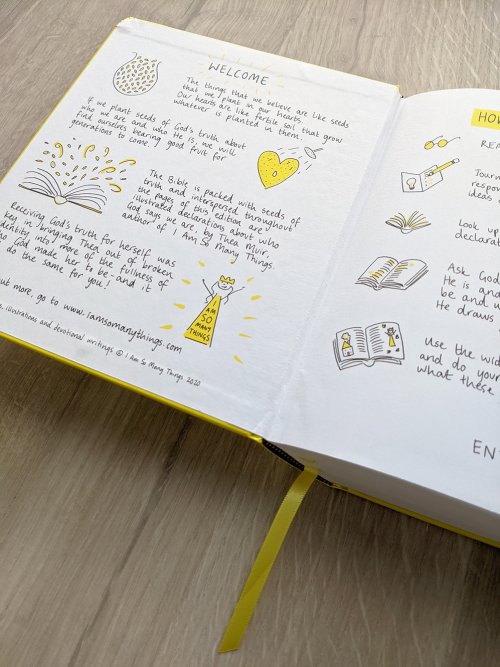 WELCOME
The things that we believe are like seeds
that we plant in our hearts.
Our hearts are like fertile soil that grow
whatever is planted in them.
If we plant seeds of God's truth about
who we are and who He is, we will
find ourselves bearing good fruit for
generations to come!
The Bible is packed with seeds of
truth and interspersed throughout
the pages of this edition are
illustrated declarations about who
God says we are, by Thea Muir,
author of I Am So Many Things.
Receiving God's truth for herself was
key in bringing Thea out of broken
identity into more of the fullness of
who God made her to be - and it
do the same for you!
I AM
SO
MANY
THINGS
out more, go to www.iamsomanythings.com
illustrations and devotional writings © I Am So Many Things 2020
HOW
REA
Journ
respon
ideas
Look up
declarat
Ask God
He is an
be and w
He draws
Use the wid
and do your
what these
EN